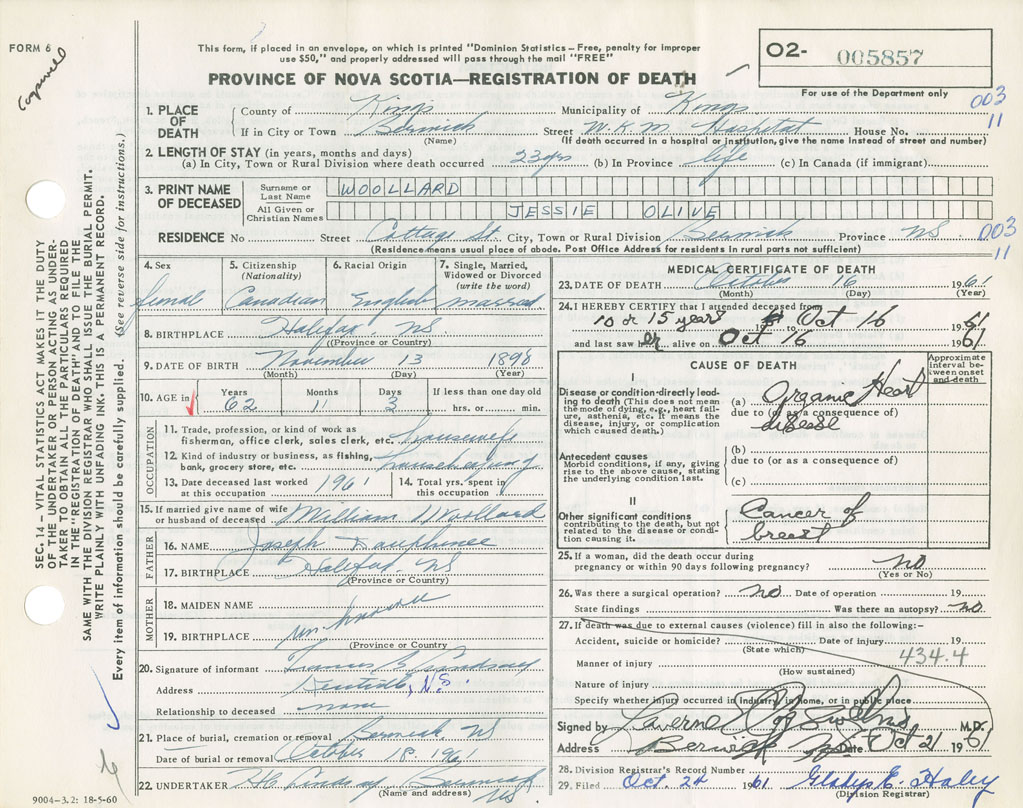 FORM 6
This form, if placed in an envelope, on which is printed "Dominion Statistics – Free, penalty for improper
use $50," and properly addressed will pass through the mail "FREE"
O2- 005857
For use of the Department only
PROVINCE OF NOVA SCOTIA—REGISTRATION OF DEATH
003
11
1. PLACE OF DEATH
County of Kings Municipality of Kings
If in City or Town Berwick Street W.K.M. Hospital House No.
(Name) (If death occurred in a hospital or institution, give the name instead of street and number)
2. LENGTH OF STAY (in years, months and days)
(a) In City, Town or Rural Division where death occurred 23 yrs (b) In Province life (c) In Canada (if immigrant)
3. PRINT NAME OF DECEASED
Surname or Last Name WOOLLARD
All Given or Christian Names JESSIE OLIVE
RESIDENCE No Street Cottage St. City, Town or Rural Division Berwick Province NS
003
11
(Residence means usual place of abode. Post Office Address for residents in rural parts not sufficient)
4. Sex female
5. Citizenship (Nationality) Canadian
6. Racial Origin English
7. Single, Married, Widowed or Divorced (write the word) married
8. BIRTHPLACE Halifax NS
(Province or Country)
9. DATE OF BIRTH November 13 1898
(Month) (Day) (Year)
10. AGE in Years 62 Months 11 Days 3 If less than one day old hrs. or min.
OCCUPATION
11. Trade, profession, or kind of work as
fisherman, office clerk, sales clerk, etc. housewife
12. Kind of industry or business, as fishing,
bank, grocery store, etc. housekeeping
13. Date deceased last worked at this occupation 1961
14. Total yrs. spent in this occupation
15. If married give name of wife
or husband of deceased William Woollard
FATHER
16. NAME Joseph Dauphinee
17. BIRTHPLACE Halifax NS
(Province or Country)
MOTHER
18. MAIDEN NAME
19. BIRTHPLACE unknown
(Province or Country)
20. Signature of informant Frances E. Lindsay
Address Kentville, N.S.
Relationship to deceased none
21. Place of burial, cremation or removal Berwick NS
Date of burial or removal October 18 1961
22. UNDERTAKER Lindsay Berwick NS
(Name and address)
MEDICAL CERTIFICATE OF DEATH
23. DATE OF DEATH October 16 1961
(Month) (Day) (Year)
24. I HEREBY CERTIFY that I attended deceased from
10 or 15 years 19 to Oct 16 1961
and last saw her alive on Oct 16 1961
CAUSE OF DEATH
Approximate interval between onset and death
I
Disease or condition directly leading to death (This does not mean the mode of dying, e.g., heart failure, asthenia, etc. It means the disease, injury, or complication which caused death.)
(a) Organic Heart
due to (or as a consequence of)
disease
Antecedent causes
Morbid conditions, if any, giving rise to the above cause, stating the underlying condition last.
(b)
due to (or as a consequence of)
(c)
II
Other significant conditions
contributing to the death, but not related to the disease or condition causing it.
Cancer of
breast
25. If a woman, did the death occur during
pregnancy or within 90 days following pregnancy? no
(Yes or No)
26. Was there a surgical operation? no Date of operation 19
State findings Was there an autopsy? no
27. If death was due to external causes (violence) fill in also the following:–
Accident, suicide or homicide? Date of injury 19
(State which)
434.4
Manner of injury
(How sustained)
Nature of injury
Specify whether injury occurred in industry, in home, or in public place
Signed by M.D.
Address Berwick NS Date Oct 21 1961
28. Division Registrar's Record Number
29. Filed Oct. 24 1961 Gladys E. Haley
(Division Registrar)
SEC. 14 – VITAL STATISTICS ACT MAKES IT THE DUTY
OF THE UNDERTAKER OR PERSON ACTING AS UNDER-
TAKER TO OBTAIN ALL THE PARTICULARS REQUIRED
IN THE "REGISTRATION OF DEATH" AND TO FILE THE
SAME WITH THE DIVISION REGISTRAR WHO SHALL ISSUE THE BURIAL PERMIT.
WRITE PLAINLY WITH UNFADING INK. THIS IS A PERMANENT RECORD.
Every item of information should be carefully supplied. (See reverse side for instructions.)
9004–3.2: 18-5-60